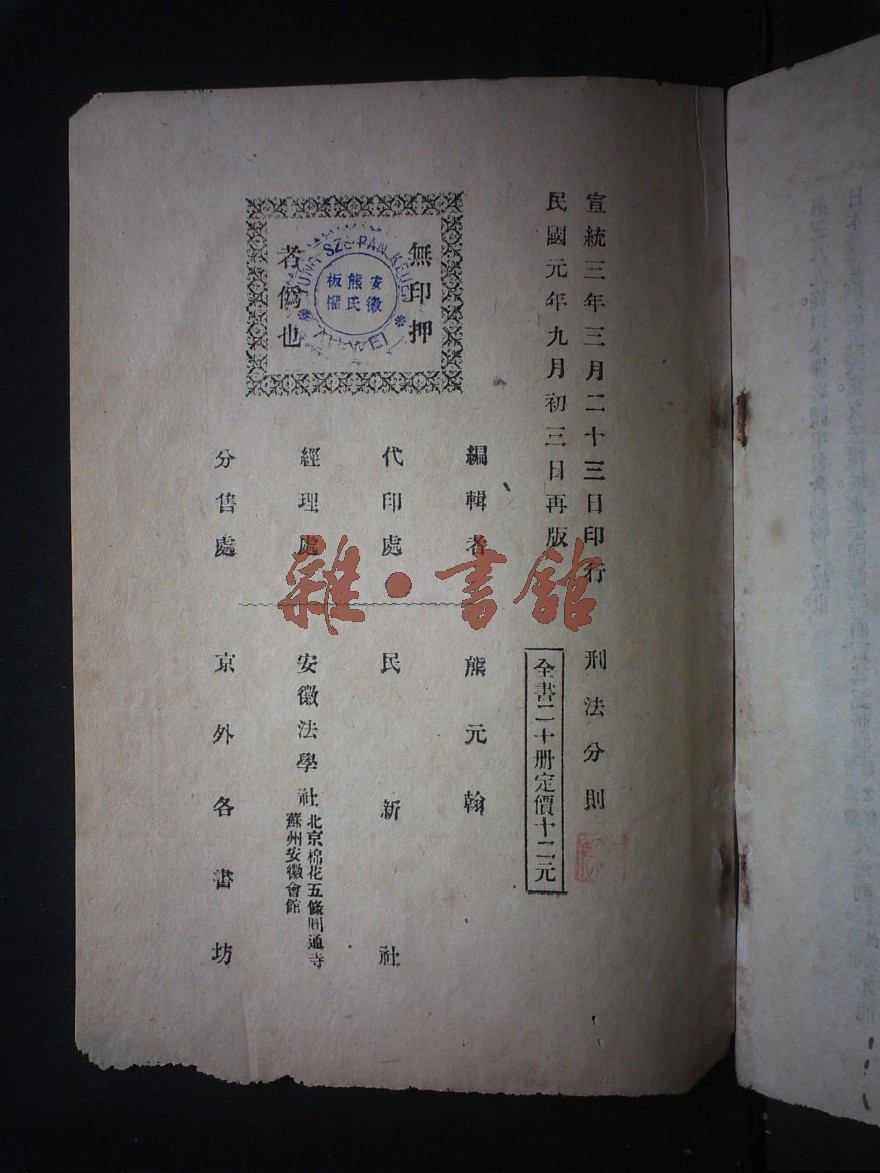 宣統三年三月二十三日印行
刑法分則
民國元年九月初三日再版
全書二十册定價十二元
編輯者
熊元翰
代印處
民新社
經理處
安徽法學社
北京棉花五條圓通寺
蘇州安徽會館
分售處
京外各書坊
無印押
者僞也
安徽
熊氏
板權
SZE PAN KEUEN
雜·書館